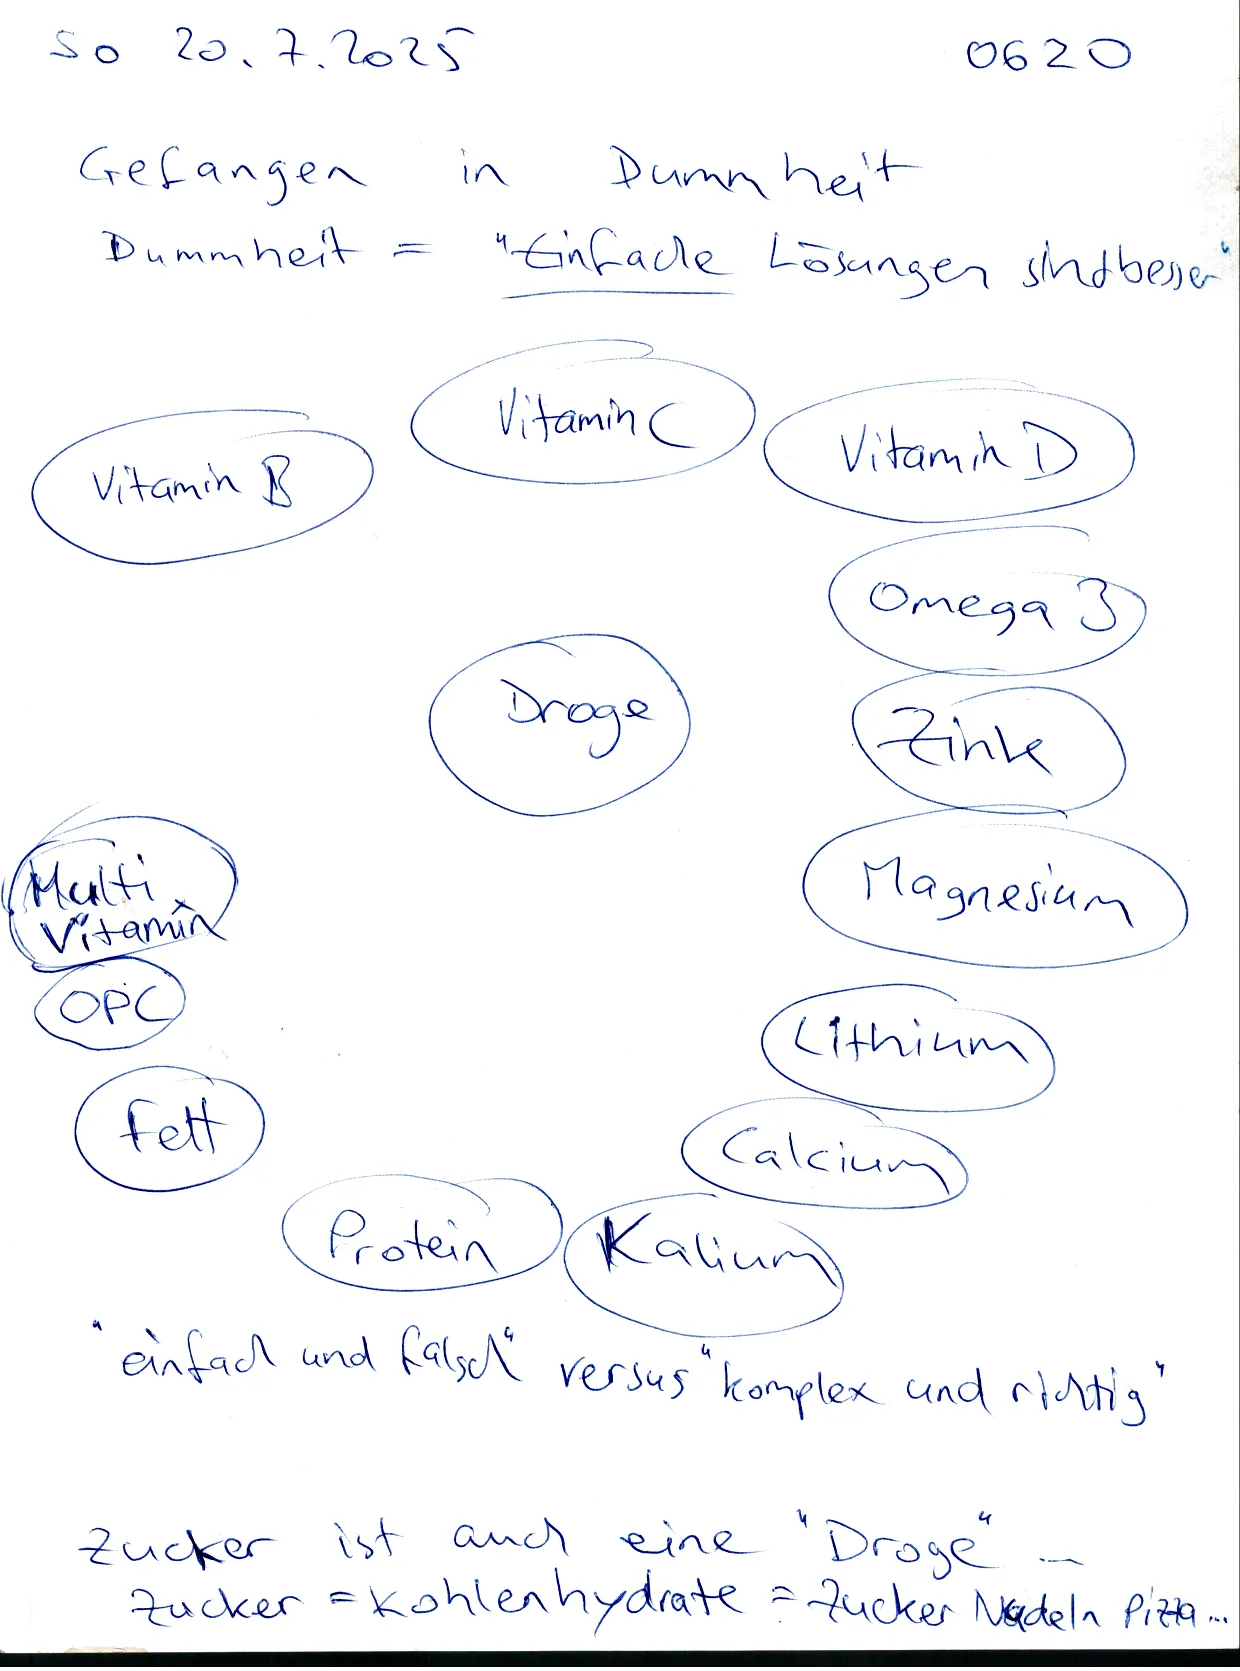 So 20.7.2025 0620
Gefangen in Dummheit
Dummheit = "Einfache Lösungen sind besser"
Vitamin C
Vitamin B
Vitamin D
Omega 3
Droge
Zink
Multi
Vitamin
Magnesium
OPC
Lithium
Fett
Calcium
Protein
Kalium
"einfach und falsch" versus "komplex und richtig"
Zucker ist auch eine "Droge" ...
Zucker = Kohlenhydrate = Zucker Nudeln Pizza...